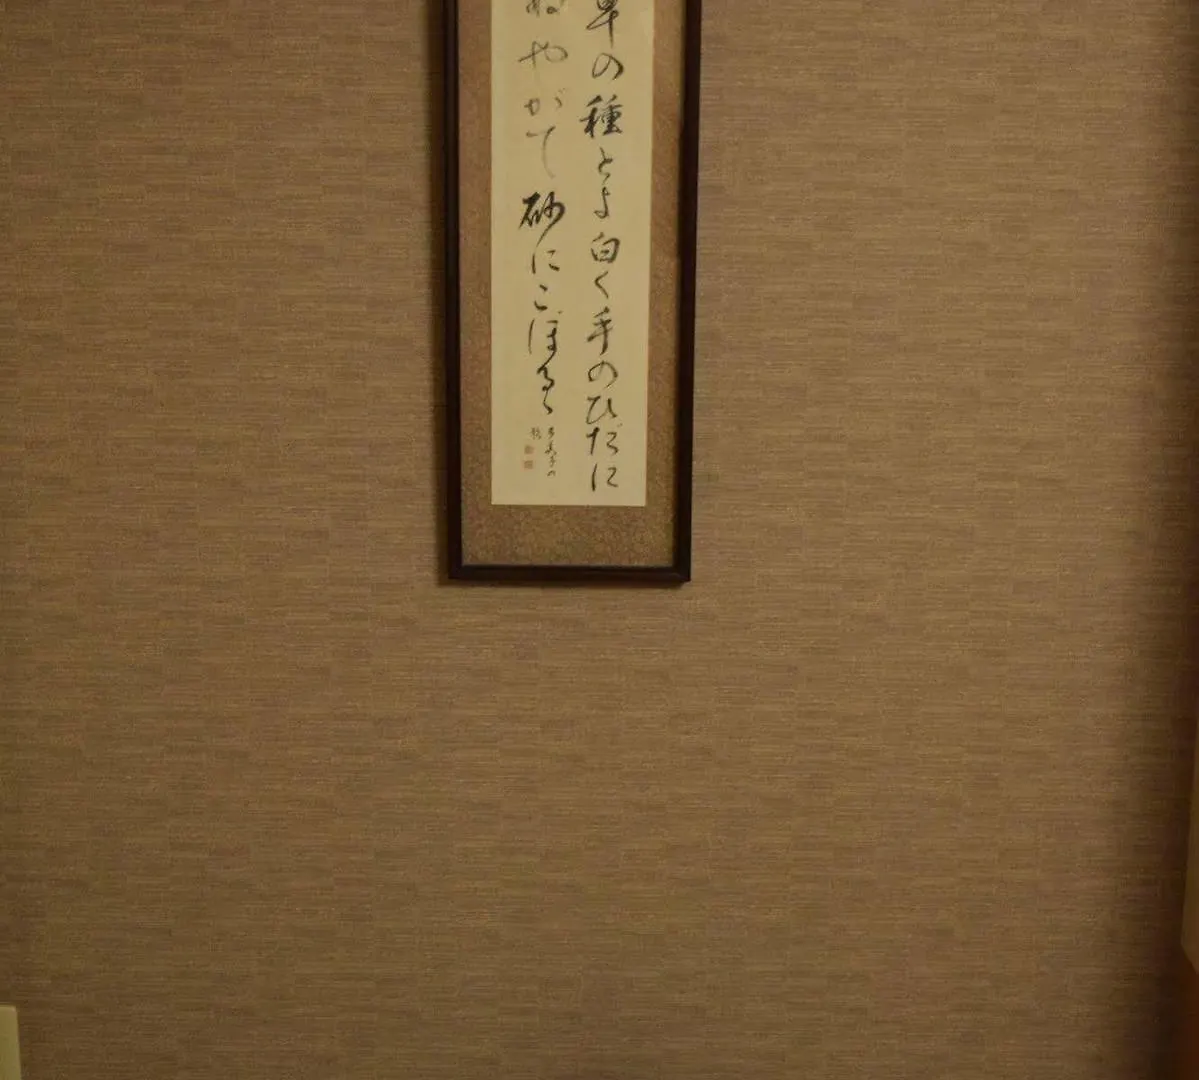 草の種とよ白く手のひだに
ねやがて砂にこぼるゝ